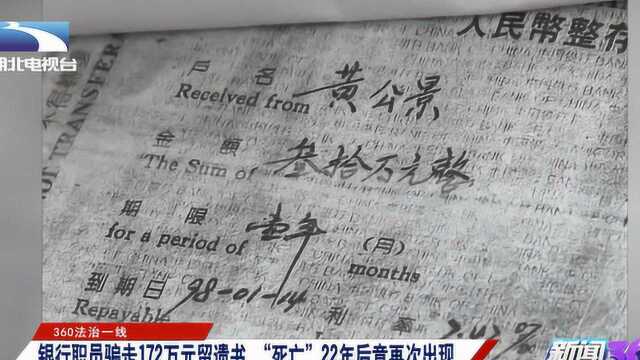 湖北电视台
人民幣整存
TRANSFER
戶名 黄公景
Received from
金額 叁拾万元整
The Sum of
期限 壹年 (月)
for a period of months
到期日 98-01-14 利率
Repayable
360法治一线
银行职员骗走172万元留遗书 “死亡”22年后竟再次出现
新闻